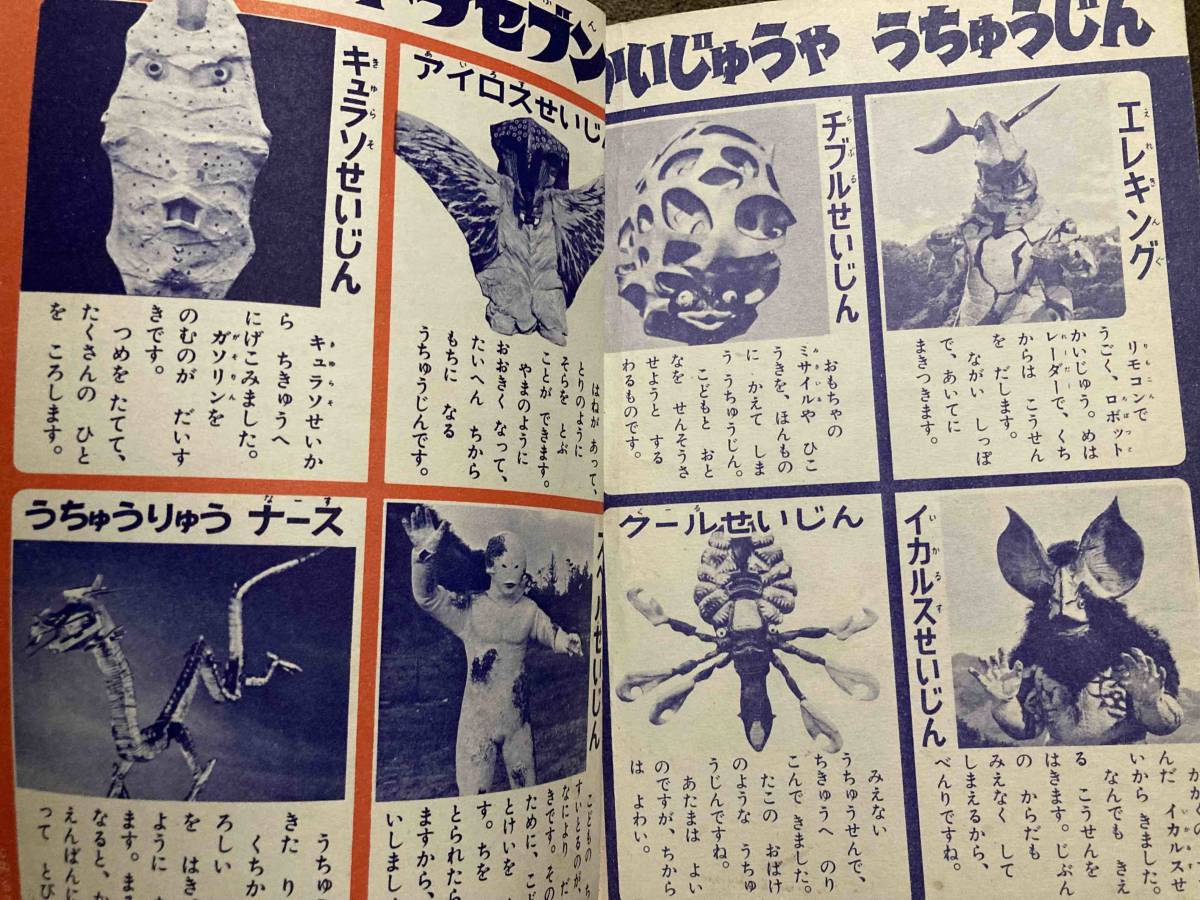 かいじゅうや うちゅうじん
エレキング
リモコンで
うごく、ロボット
かいじゅう。めは
レーダーで、くち
からは こうせん
を だします。
ながい しっぽ
で、あいてに
まきつきます。
チブルせいじん
おもちゃの
ミサイルや ひこ
うきを、ほんもの
に かえて しま
う うちゅうじん。
こどもと おと
なを せんそうさ
せようと する
わるものです。
イカルスせいじん
んだ イカルスせ
いから きました。
なんでも きえ
る こうせんを
はきます。じぶん
の からだも
みえなく して
しまえるから、
べんりですね。
クールせいじん
みえない
うちゅうせんで、
ちきゅうへ のり
こんで きました。
たこの おばけ
のような うちゅ
うじんですね。
あたまは よい
のですが、ちから
は よわい。
セブン
アイロスせいじん
はねが あって、
とりのように
そらを とぶ
ことが できます。
やまのように
おおきく なって、
たいへん ちから
もちに なる
うちゅうじんです。
キュラソせいじん
キュラソせいか
ら ちきゅうへ
にげこみました。
ガソリンを
のむのが だいす
きです。
つめをたてて、
たくさんの ひと
を ころします。
ルせいじん
こどもの ち
すいとるのが、
なにより だ
きです。その
ために、こど
とけいを
す。ちを
とられたら
ますから、
いしまし
うちゅうりゅう ナース
うちゅ
きた り
くちか
ろしい
を はき
ように
ます。ま
なると、か
えんばんに
って とび